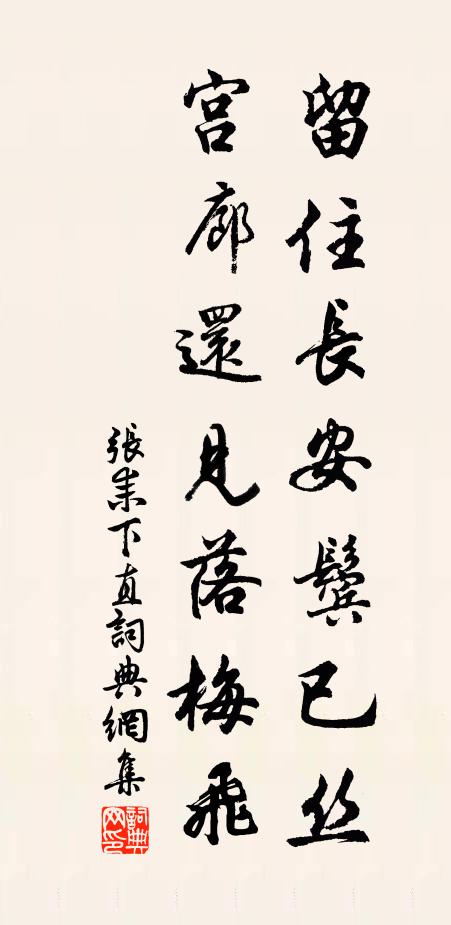 留住長安鬓已丝
宫廊還見落梅飛
張耒下直詞典網集
詞典网印